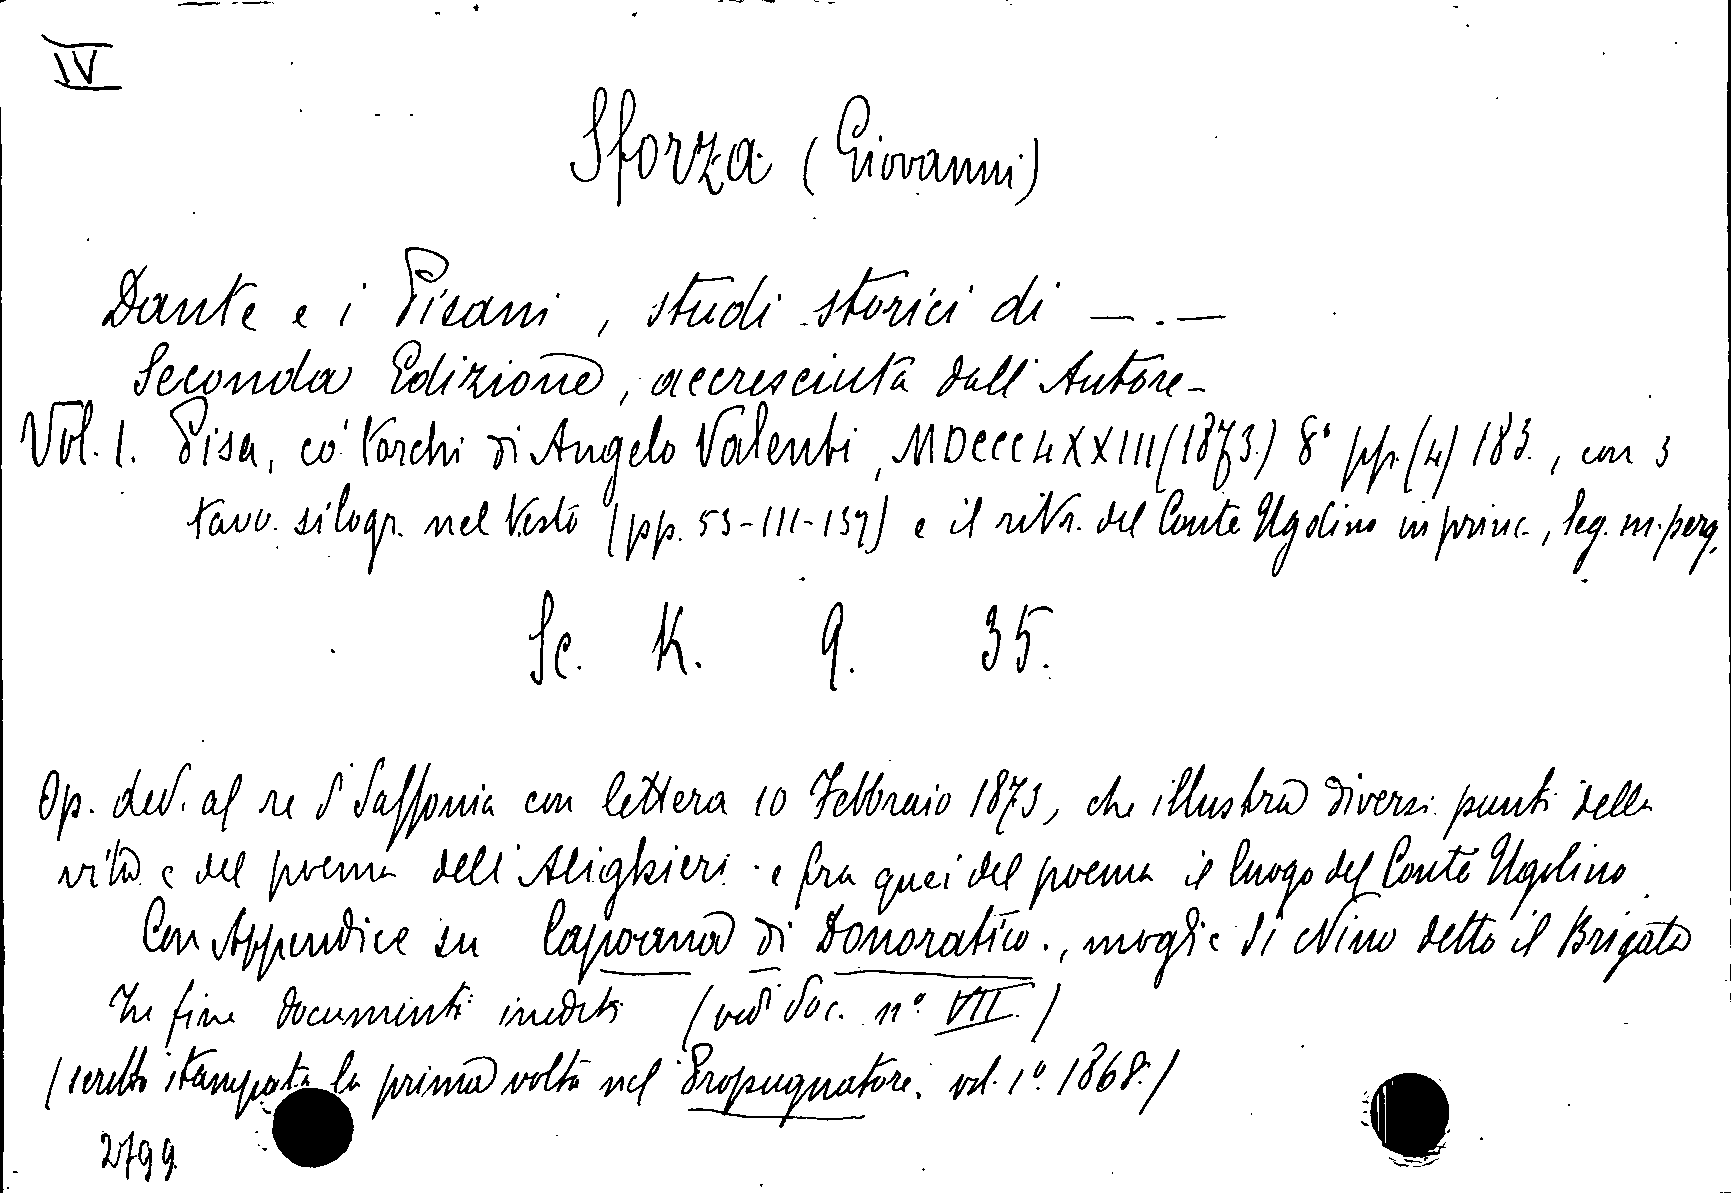 IV
Sforza (Giovanni)
Dante e i Pisani, studi storici di — . —
Seconda Edizione, accresciuta dall'Autore -
Vol. 1. Pisa, co' torchi di Angelo Valenti, MDCCCLXXIII (1873.) 8° pp. (4) 183., con 3
tavv. silogr. nel testo (pp. 53-111-137) e il ritr. del Conte Ugolino in princ., leg. m. perg.
Sc. K. 9. 35.
Op. ded. al re di Sassonia con lettera 10 Febbraio 1873, che illustra diversi punti della
vita e del poema dell'Alighieri e fra quei del poema il luogo del Conte Ugolino
Con Appendice su Capoana di Donoratico., moglie di Nino detto il Brigata
In fine documenti inediti (vedi doc. n° VII.)
(scritto stampata la prima volta nel Propugnatore. vol. 1°. 1868.)
2799